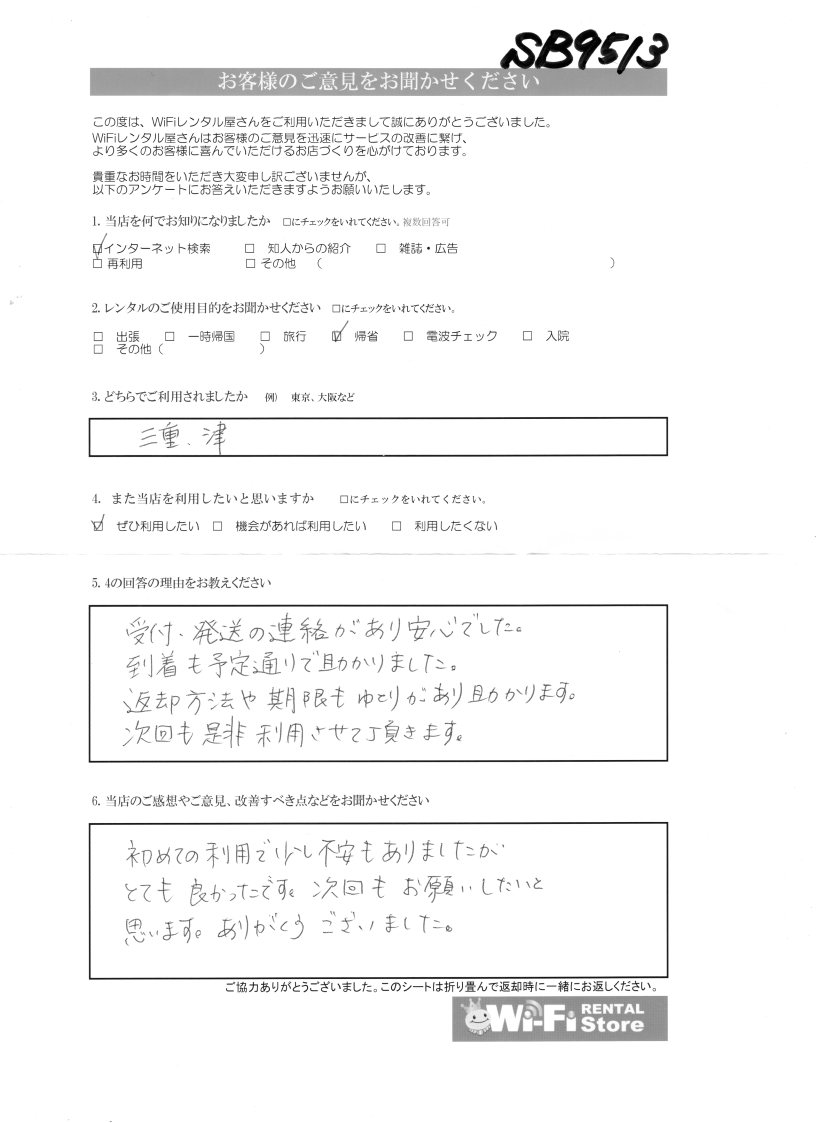 SB9513
お客様のご意見をお聞かせください
この度は、WiFiレンタル屋さんをご利用いただきまして誠にありがとうございました。
WiFiレンタル屋さんはお客様のご意見を迅速にサービスの改善に繋げ、
より多くのお客様に喜んでいただけるお店づくりを心がけております。
貴重なお時間をいただき大変申し訳ございませんが、
以下のアンケートにお答えいただきますようお願いいたします。
1. 当店を何でお知りになりましたか □にチェックをいれてください。複数回答可
☑インターネット検索 □ 知人からの紹介 □ 雑誌・広告
□ 再利用 □ その他 （ ）
2. レンタルのご使用目的をお聞かせください □にチェックをいれてください。
□ 出張 □ 一時帰国 □ 旅行 ☑ 帰省 □ 電波チェック □ 入院
□ その他（ ）
3. どちらでご利用されましたか 例） 東京、大阪など
三重、津
4. また当店を利用したいと思いますか □にチェックをいれてください。
☑ ぜひ利用したい □ 機会があれば利用したい □ 利用したくない
5. 4の回答の理由をお教えください
受付、発送の連絡があり安心でした。
到着も予定通りで助かりました。
返却方法や期限もゆとりがあり助かります。
次回も是非利用させて頂きます。
6. 当店のご感想やご意見、改善すべき点などをお聞かせください
初めての利用で少し不安もありましたが
とても良かったです。次回もお願いしたいと
思います。ありがとうございました。
ご協力ありがとうございました。このシートは折り畳んで返却時に一緒にお返しください。
Wi-Fi RENTAL Store